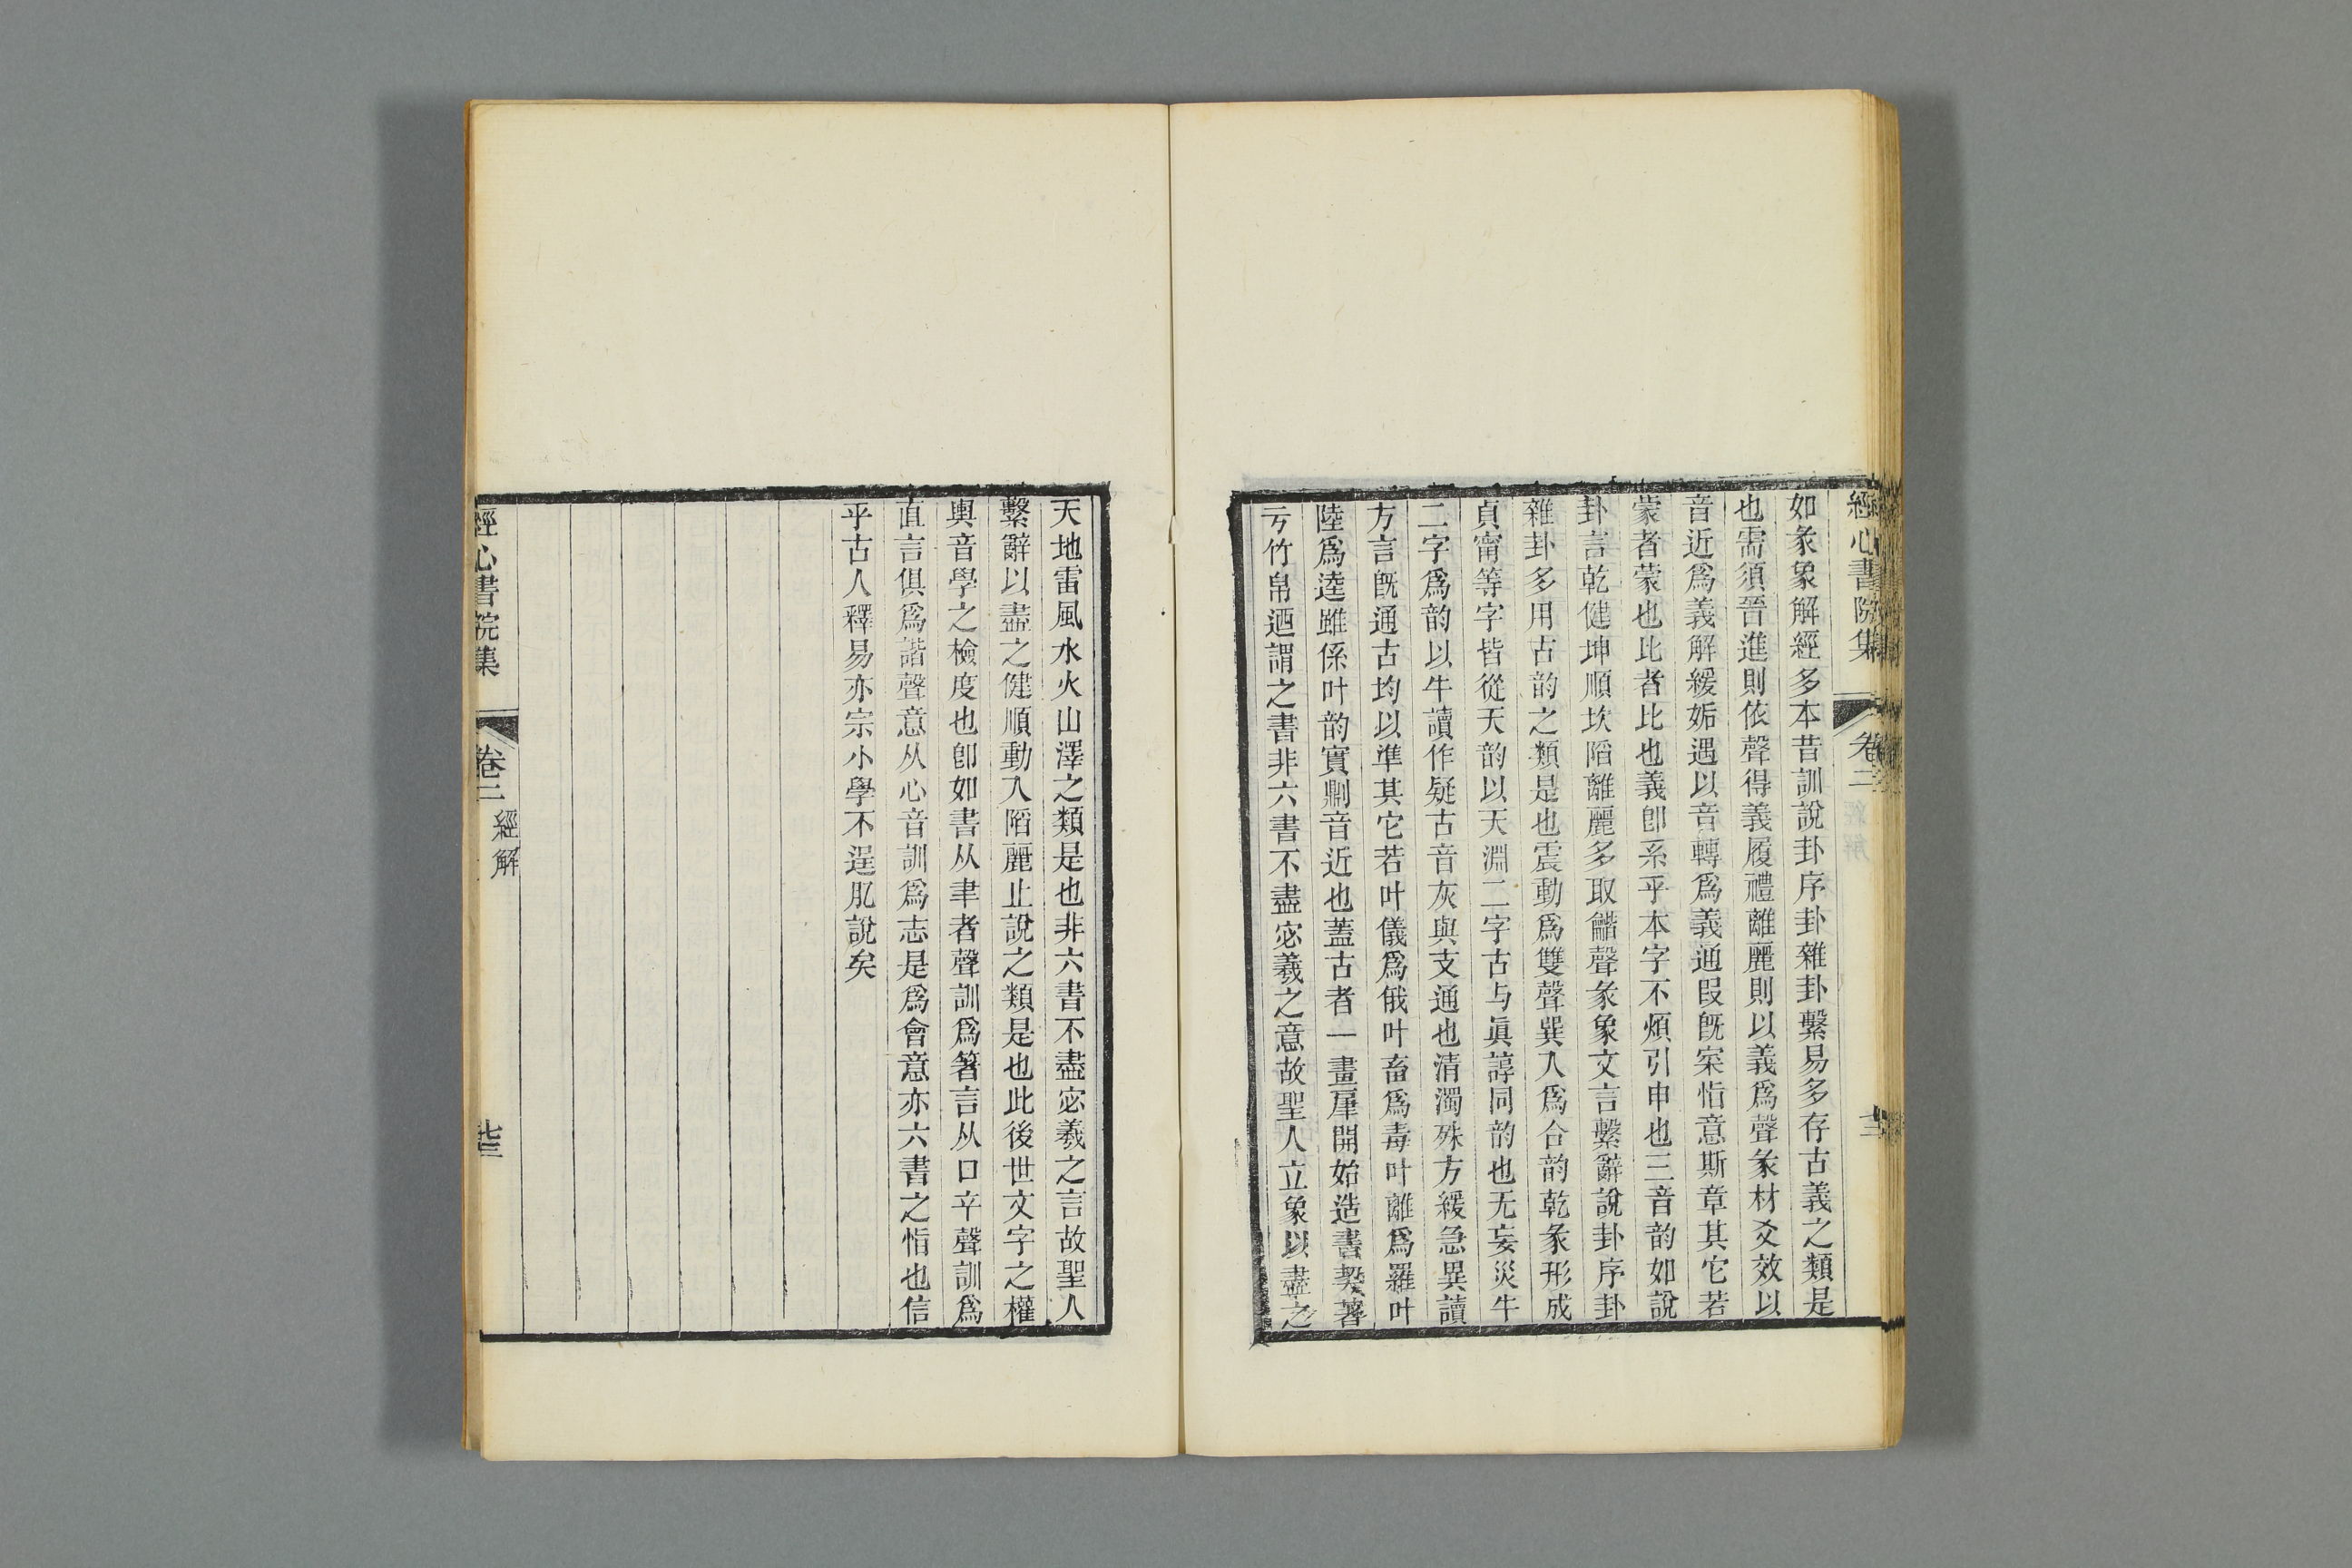 經心書院集
卷二
經解
如彖象解經多本昔訓說卦序卦雜卦繫易多存古義之類是
也需須晉進則依聲得義履禮離麗則以義爲聲彖材爻效以
音近爲義解緩姤遇以音轉爲義通叚旣宷恉意斯章其它若
蒙者蒙也比者比也義卽系乎本字不煩引申也三音韵如說
卦言乾健坤順坎陷離麗多取龤聲彖象文言繫辭說卦序卦
雜卦多用古韵之類是也震動爲雙聲巽入爲合韵乾彖形成
貞甯等字皆從天韵以天淵二字古与眞諄同韵也无妄災牛
二字爲韵以牛讀作疑古音灰與支通也清濁殊方緩急異讀
方言旣通古均以準其它若叶儀爲俄叶畜爲毒叶離爲羅叶
陸爲逵雖係叶韵實劘音近也蓋古者一畫肇開始造書契著
亏竹帛迺謂之書非六書不盡宓羲之意故聖人立象以盡之
天地雷風水火山澤之類是也非六書不盡宓羲之言故聖人
繫辭以盡之健順動入陷麗止說之類是也此後世文字之權
輿音學之檢度也卽如書从聿者聲訓爲箸言从口䇂聲訓爲
直言俱爲諧聲意从心音訓爲志是爲會意亦六書之恉也信
乎古人釋易亦宗小學不逞肊說矣
經心書院集
卷二
經解